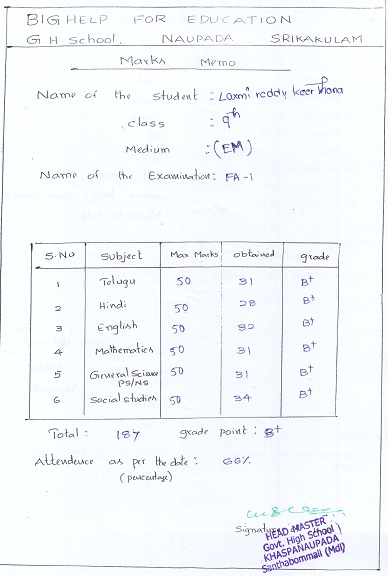 BIG HELP FOR EDUCATION
G H School, NAUPADA SRIKAKULAM
Marks Memo
Name of the Student : Laxmi reddy Keerthana
class : 9th
Medium : (EM)
Name of the Examination : FA-1
S.No Subject Max Marks obtained grade
1 Telugu 50 31 B+
2 Hindi 50 28 B+
3 English 50 32 B+
4 Mathematics 50 31 B+
5 General Science PS/NS 50 31 B+
6 Social studies 50 34 B+
Total : 187 grade point : B+
Attendence as per the date : 66%
(percentage)
Signature
HEAD MASTER
Govt. High School
KHASPANAUPADA
Santhabommali (Mdl)